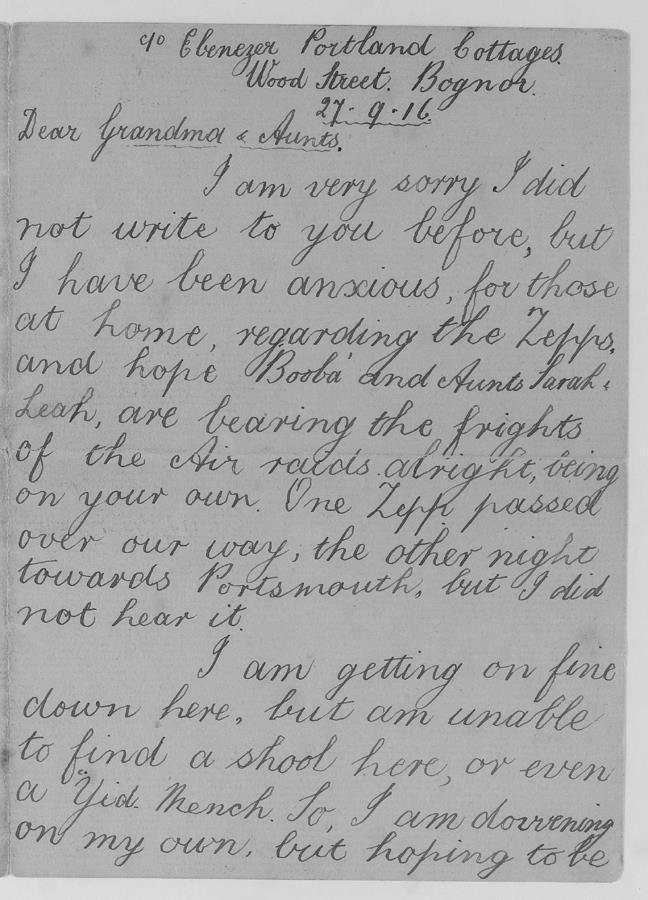 c/o Ebenezer Portland Cottages.
Wood Street. Bognor.
27.9.16.
Dear Grandma & Aunts.
I am very sorry I did
not write to you before, but
I have been anxious, for those
at home, regarding the Zepps,
and hope Booba and Aunts Sarah &
Leah, are bearing the frights
of the Air raids alright, being
on your own. One Zepp passed
over our way, the other night
towards Portsmouth, but I did
not hear it.
I am getting on fine
down here, but am unable
to find a shool here, or even
a "Yid. Mench. So, I am dovvening
on my own, but hoping to be